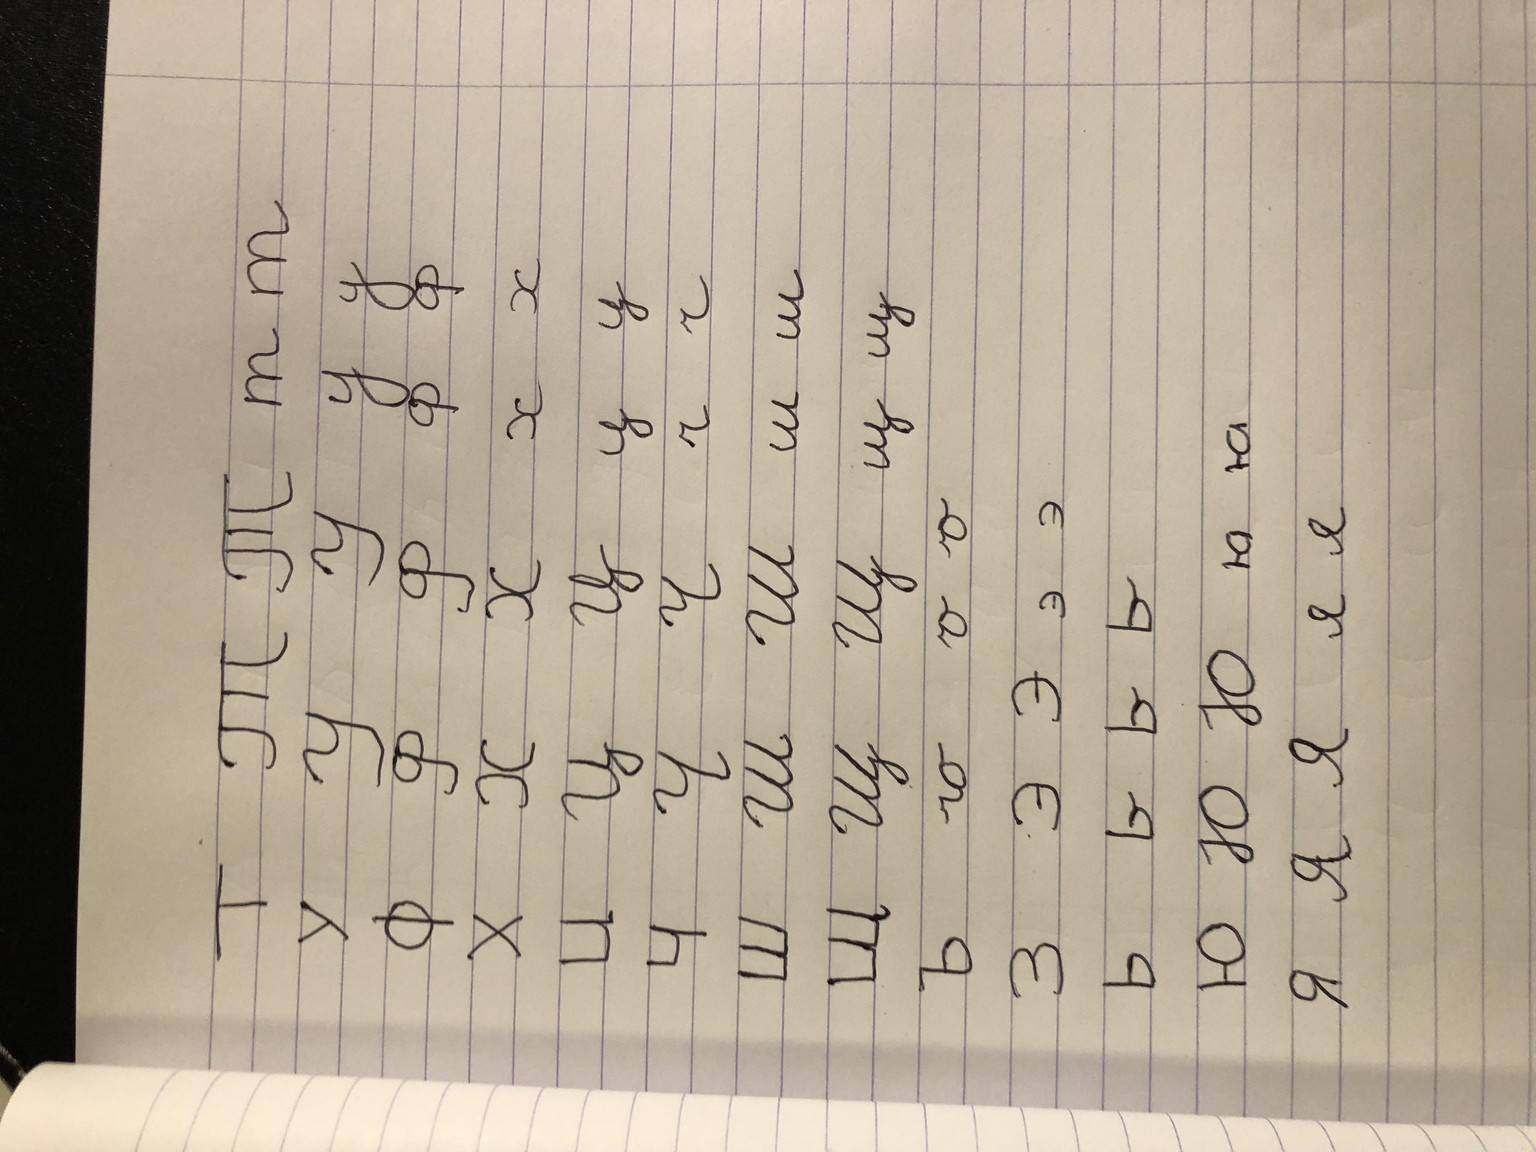 Т Т Т т т
У У У у у
Ф Ф Ф ф ф
Х Х Х х х
Ц Ц Ц ц ц
Ч Ч Ч ч ч
Ш Ш Ш ш ш
Щ Щ Щ щ щ
Ъ ъ ъ ъ
З Э Э э э
Ь ь ь ь
Ю Ю Ю ю ю
Я Я Я я я